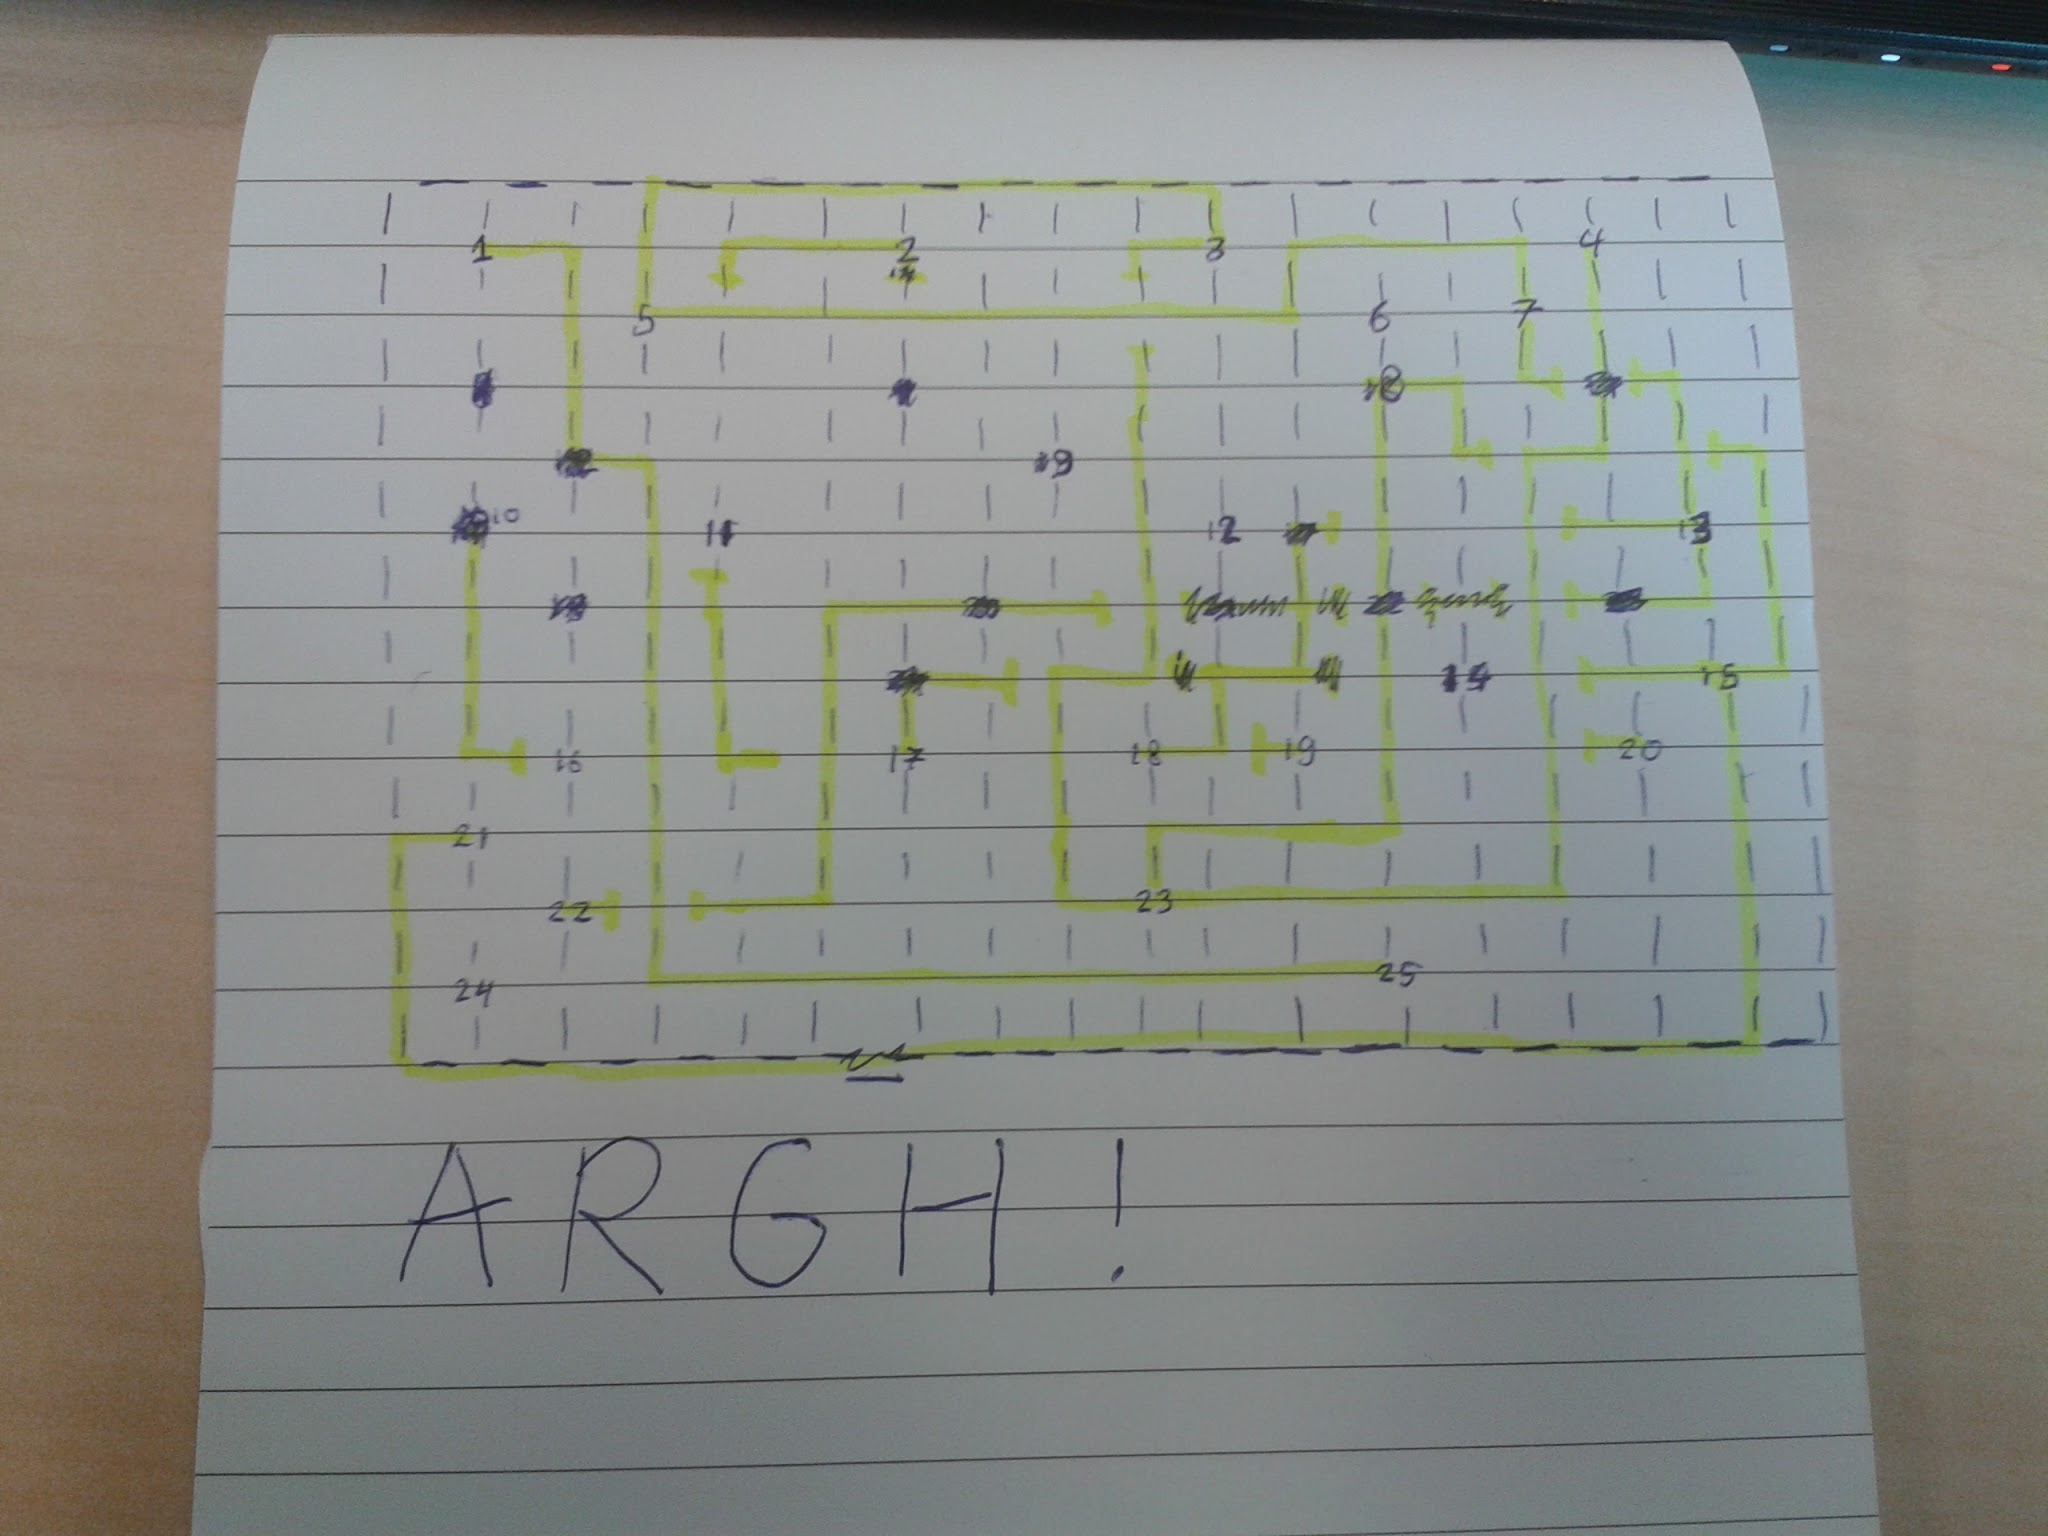 1 2 3 4
5 6 7
8
9
10 11 12 13
14 15
16 17 18 19 20
21
22 23
24 25
ARGH!